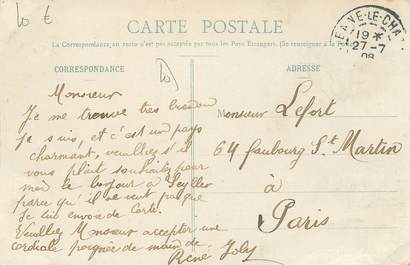 10 €
CARTE POSTALE
La Correspondance, au recto n'est pas acceptée par tous les Pays Étrangers. (Se renseigner à la Poste)
CORRESPONDANCE
ADRESSE
LE-CHA
19
27-7
08
Monsieur
Je me trouve très bien où
je suis, et c'est un pays
charmant, veuillez s'il
vous plait souhaiter pour
moi le bonjour à
parce qu'il ne veut pas que
je lui envoie de carte.
Veuillez Monsieur accepter une
cordiale poignée de main de
René Joly
Monsieur Lefort
64 faubourg St Martin
à
Paris